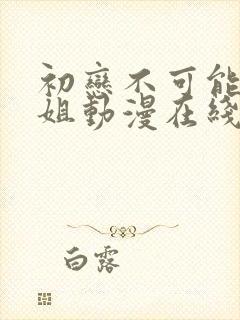 初戀不可能
姐動漫在綫
白露